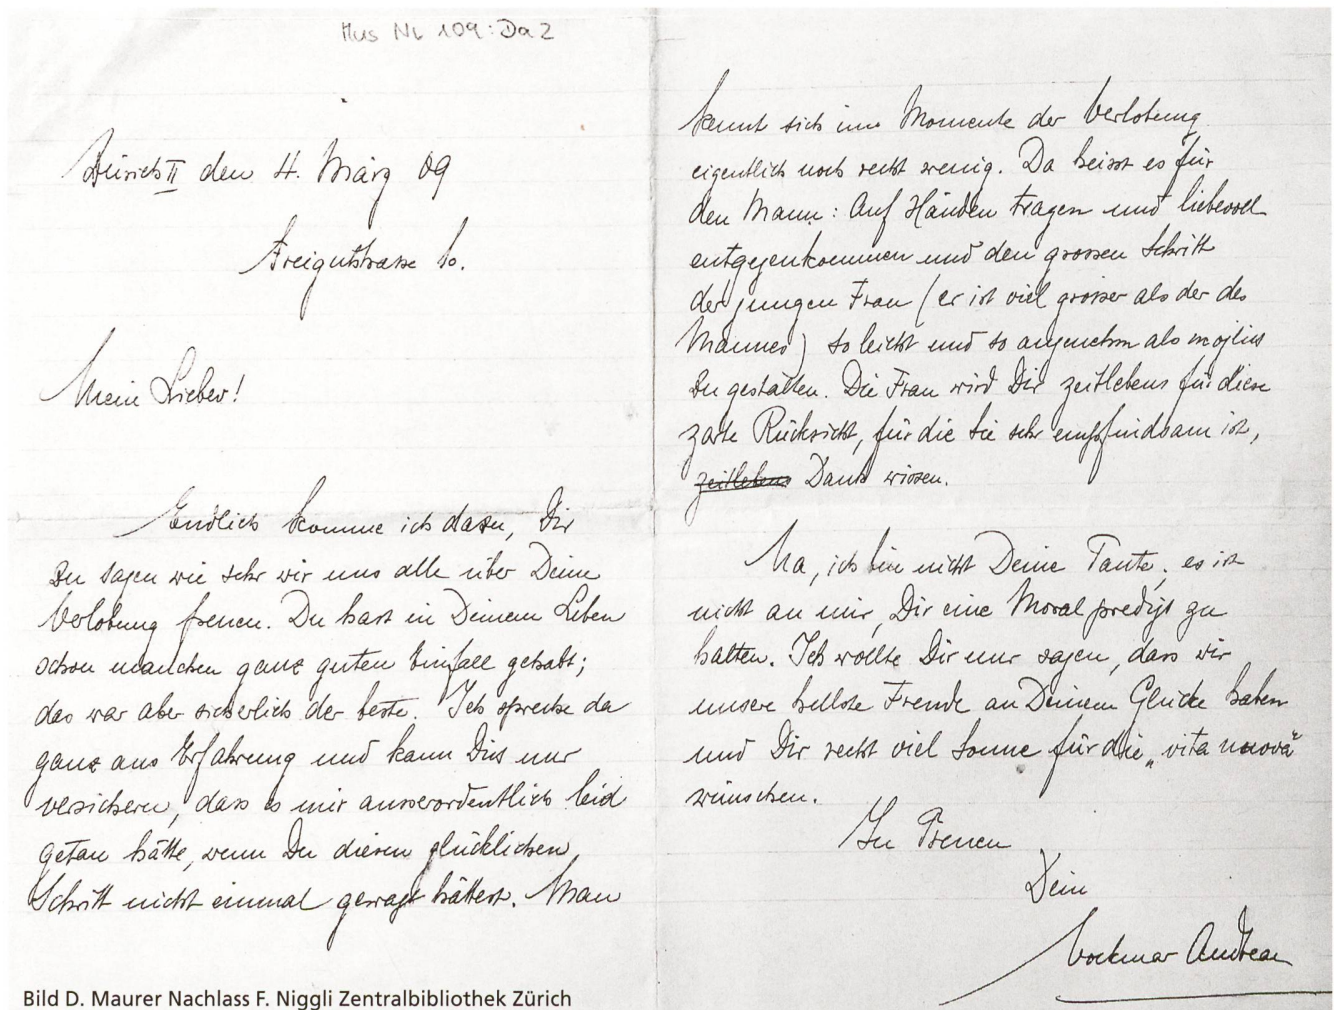 Mus NL 109: Da 2
Zürich II den 4. März 09
Freigutstrasse 10.
Mein Lieber!
Endlich komme ich dazu, Dir
zu sagen wie sehr wir uns alle über Deine
Verlobung freuen. Du hast in Deinem Leben
schon manchen ganz guten Einfall gehabt;
das war aber sicherlich der beste. Ich spreche da
ganz aus Erfahrung und kann Dich nur
versichern, dass es mir ausserordentlich leid
getan hätte, wenn Du diesen glücklichen
Schritt nicht einmal gewagt hättest. Man
kennt sich im Momente der Verlobung
eigentlich noch recht wenig. Da heisst es für
den Mann: Auf Händen tragen und liebevoll
entgegenkommen und den grossen Schritt
der jungen Frau (er ist viel grösser als der des
Mannes) so leicht und so angenehm als möglich
zu gestalten. Die Frau wird Dir zeitlebens für diese
zarte Rücksicht, für die sie sehr empfindsam ist,
zeitlebens Dank wissen.
Na, ich bin nicht Deine Tante, es ist
nicht an mir, Dir eine Moralpredigt zu
halten. Ich wollte Dir nur sagen, dass wir
unsere hellste Freude an Deinem Glücke haben
und Dir recht viel Sonne für die „vita nuova"
wünschen.
In Treuen
Dein
Volkmar Andreae
Bild D. Maurer Nachlass F. Niggli Zentralbibliothek Zürich